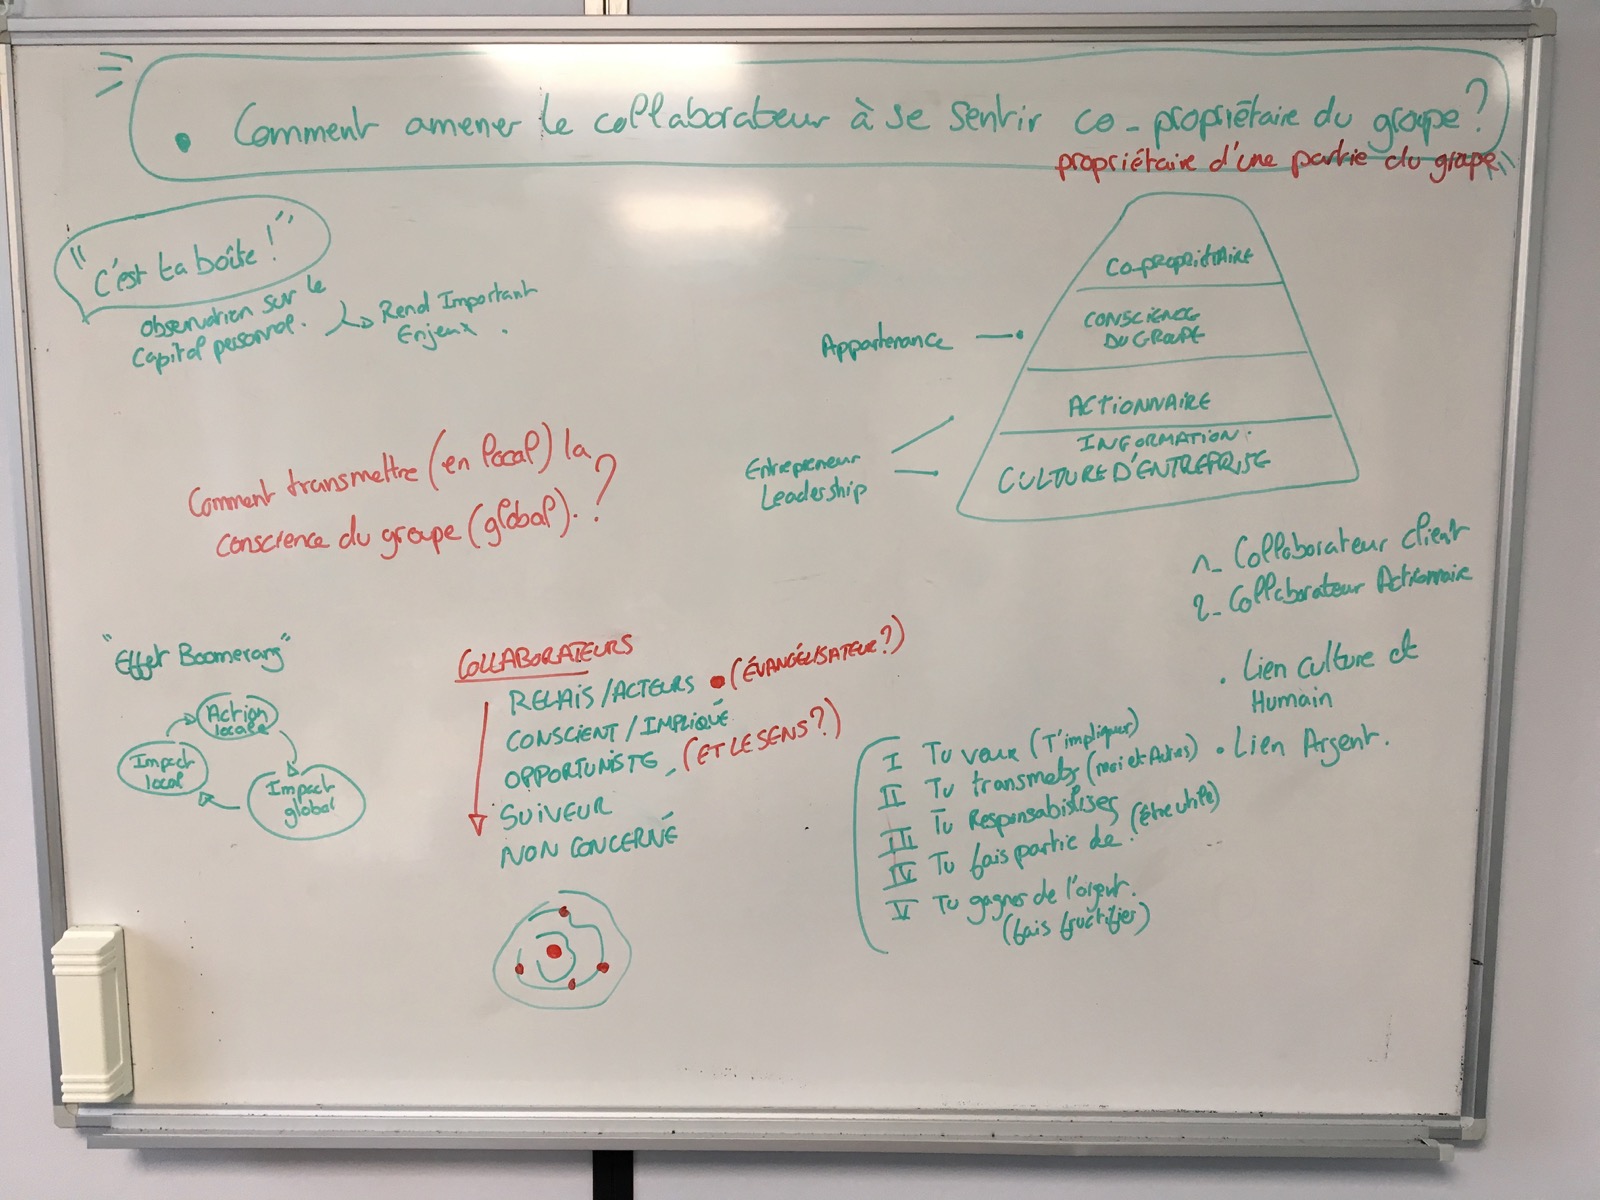 • Comment amener le collaborateur à se sentir co-propriétaire du groupe ?
propriétaire d'une partie du groupe
"C'est ta boîte !"
Observation sur le
Capital personnel.
Rend Important
Enjeux.
CO-PROPRIÉTAIRE
CONSCIENCE
DU GROUPE
Appartenance
ACTIONNAIRE
INFORMATION :
CULTURE D'ENTREPRISE
Entrepreneur
Leadership
Comment transmettre (en local) la
conscience du groupe (global). ?
1- Collaborateur client
2- Collaborateur Actionnaire
• Lien culture et
Humain
• Lien Argent.
"Effet Boomerang"
Action
locale
Impact
local
Impact
global
COLLABORATEURS
RELAIS / ACTEURS • (ÉVANGÉLISATEUR ?)
CONSCIENT / IMPLIQUÉ
OPPORTUNISTE (ET LE SENS ?)
SUIVEUR
NON CONCERNÉ
I Tu veux (T'impliquer)
II Tu transmets (moi et Autres)
III Tu Responsabilises
IV Tu fais partie de (être utile)
V Tu gagnes de l'argent.
(fais fructifier)